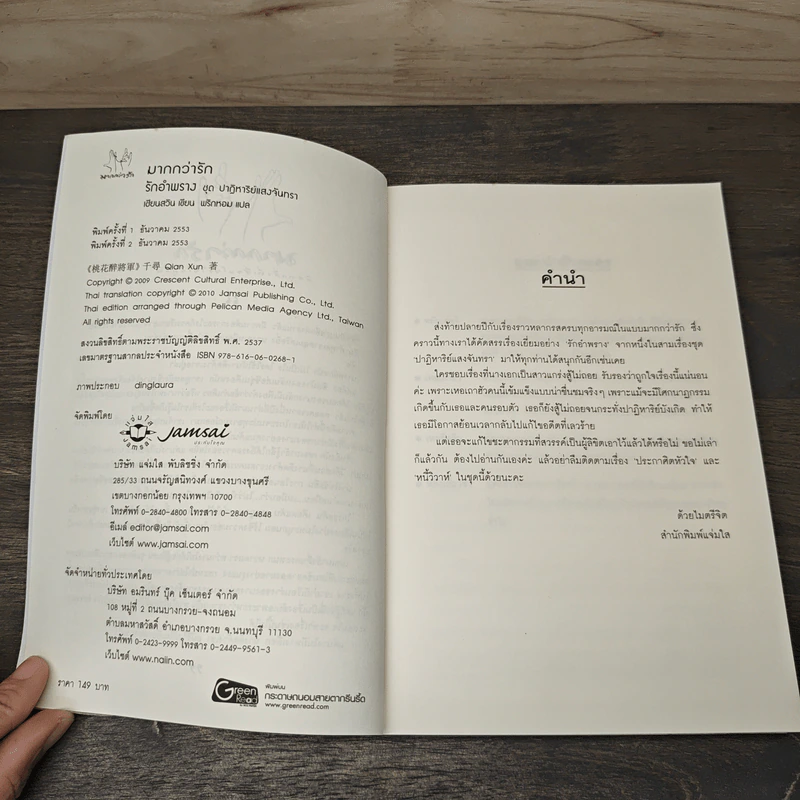 มากกว่ารัก
มากกว่ารัก
รักอำพราง ชุด ปาฏิหาริย์แสงจันทรา
เชียนสวิน เขียน พริกหอม แปล
พิมพ์ครั้งที่ 1 ธันวาคม 2553
พิมพ์ครั้งที่ 2 ธันวาคม 2553
《桃花醉將軍》千尋 Qian Xun 著
Copyright © 2009 Crescent Cultural Enterprise., Ltd.
Thai translation copyright © 2010 Jamsai Publishing Co., Ltd.
Thai edition arranged through Pelican Media Agency Ltd., Taiwan
All rights reserved
สงวนลิขสิทธิ์ตามพระราชบัญญัติลิขสิทธิ์ พ.ศ. 2537
เลขมาตรฐานสากลประจำหนังสือ ISBN 978-616-06-0268-1
ภาพประกอบ dinglaura
จัดพิมพ์โดย
แจ่มใส
Jamsai
Jamsai
บริษัท แจ่มใส พับลิชชิ่ง จำกัด
285/33 ถนนจรัญสนิทวงศ์ แขวงบางขุนศรี
เขตบางกอกน้อย กรุงเทพฯ 10700
โทรศัพท์ 0-2840-4800 โทรสาร 0-2840-4848
อีเมล์ editor@jamsai.com
เว็บไซต์ www.jamsai.com
จัดจำหน่ายทั่วประเทศโดย
บริษัท อมรินทร์ บุ๊ค เซ็นเตอร์ จำกัด
108 หมู่ที่ 2 ถนนบางกรวย-จงถนอม
ตำบลมหาสวัสดิ์ อำเภอบางกรวย จ.นนทบุรี 11130
โทรศัพท์ 0-2423-9999 โทรสาร 0-2449-9561-3
เว็บไซต์ www.naiin.com
ราคา 149 บาท
Green Read
พิมพ์บน
กระดาษถนอมสายตากรีนรี้ด
www.greenread.com
คำนำ
ส่งท้ายปลายปีกับเรื่องราวหลากรสครบทุกอารมณ์ในแบบมากกว่ารัก ซึ่ง
คราวนี้ทางเราได้คัดสรรเรื่องเยี่ยมอย่าง 'รักอำพราง' จากหนึ่งในสามเรื่องชุด
'ปาฏิหาริย์แสงจันทรา' มาให้ทุกท่านได้สนุกกันอีกเช่นเคย
ใครชอบเรื่องที่นางเอกเป็นสาวแกร่งสู้ไม่ถอย รับรองว่าถูกใจเรื่องนี้แน่นอน
ค่ะ เพราะเหอเถาฮัวคนนี้เข้มแข็งแบบน่าชื่นชมจริงๆ เพราะแม้จะมีโศกนาฏกรรม
เกิดขึ้นกับเธอและคนรอบตัว เธอก็ยังสู้ไม่ถอยจนกระทั่งปาฏิหาริย์บังเกิด ทำให้
เธอมีโอกาสย้อนเวลากลับไปแก้ไขอดีตที่เลวร้าย
แต่เธอจะแก้ไขชะตากรรมที่สวรรค์เป็นผู้ลิขิตเอาไว้แล้วได้หรือไม่ ขอไม่เล่า
ก็แล้วกัน ต้องไปอ่านกันเองค่ะ แล้วอย่าลืมติดตามเรื่อง 'ประกาศิตหัวใจ' และ
'หนี้วิวาห์' ในชุดนี้ด้วยนะคะ
ด้วยไมตรีจิต
สำนักพิมพ์แจ่มใส